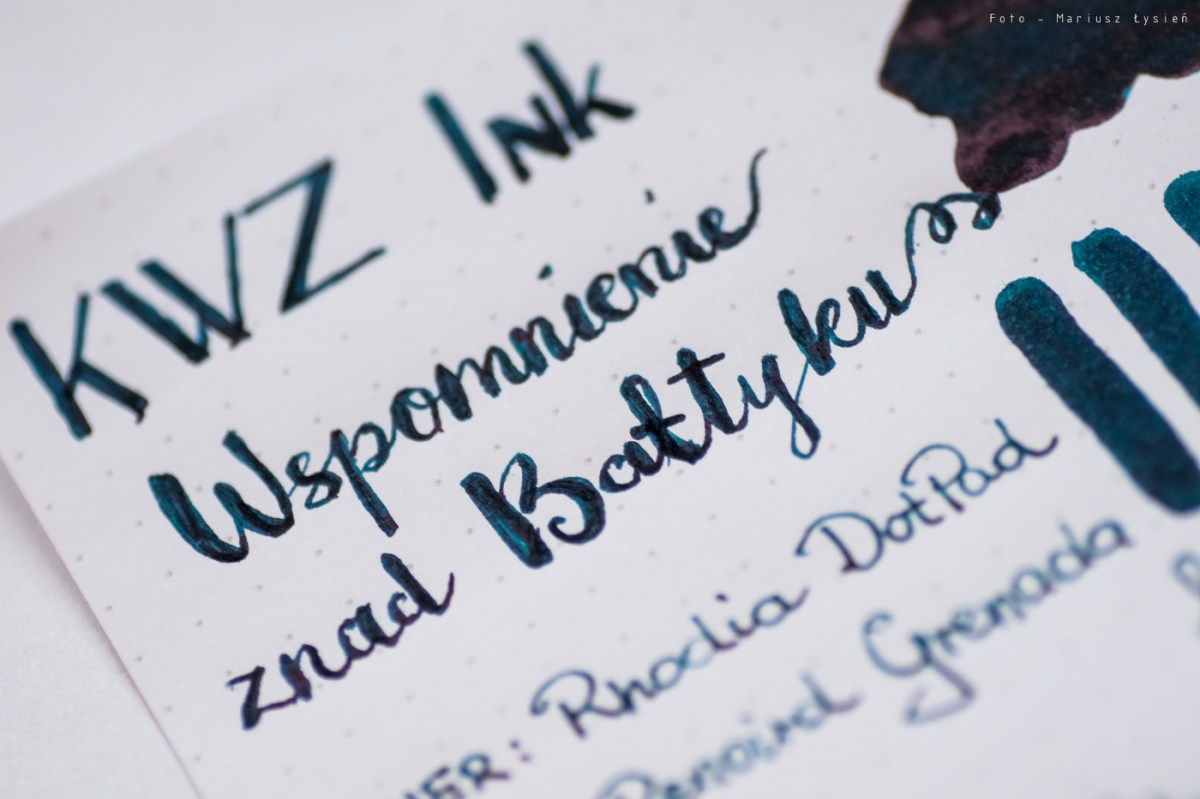 Foto - Mariusz Łysień
KWZ Ink
Wspomnienie
znad Bałtyku
Rhodia DotPad
Grenada